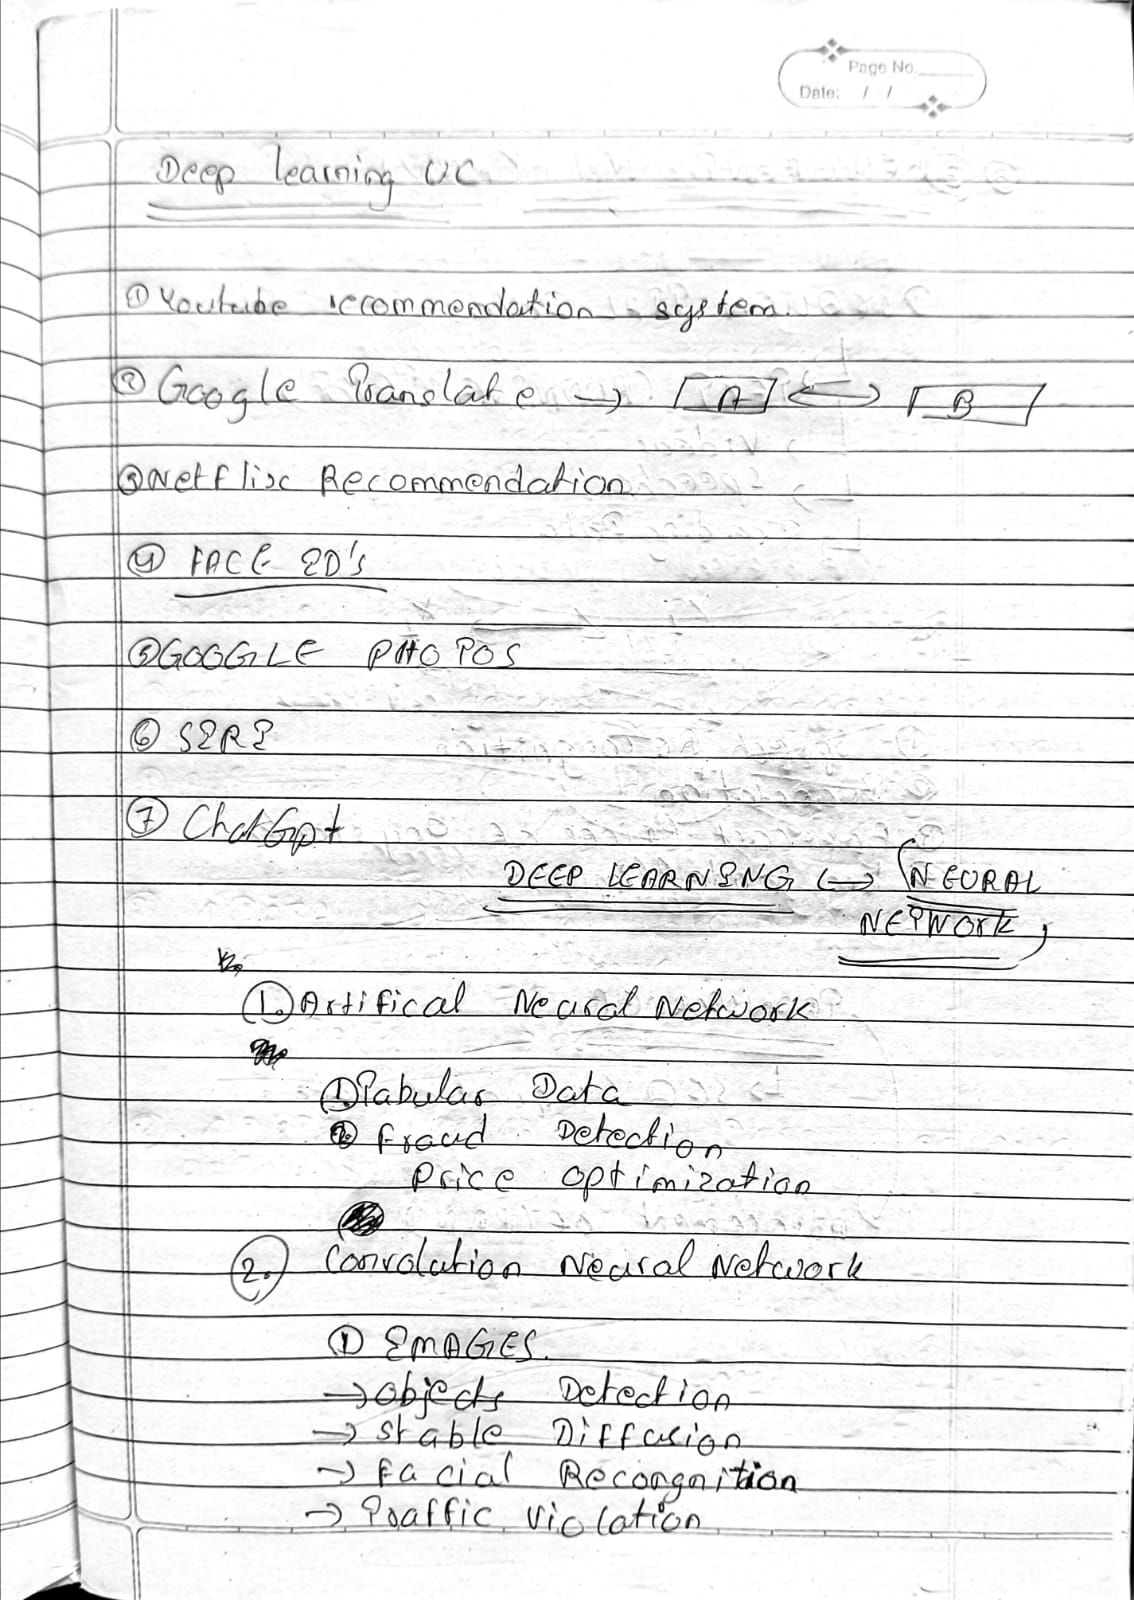 Page No.
Date: / /
Deep learning UC
① Youtube recommendation system.
② Google Translate → A ↔ B
③ Netflix Recommendation
④ FACE ID's
⑤ GOOGLE PHOTOS
⑥ SIRI
⑦ ChatGpt
DEEP LEARNING ↔ (NEURAL
NETWORK)
1. Artifical Neural Network
① Tabular Data
② Fraud Detection
Price optimization
2. Convolation Neural Network
① IMAGES.
→ Objects Detection
→ Stable Diffusion
→ Facial Recorgnition
→ Traffic Violation